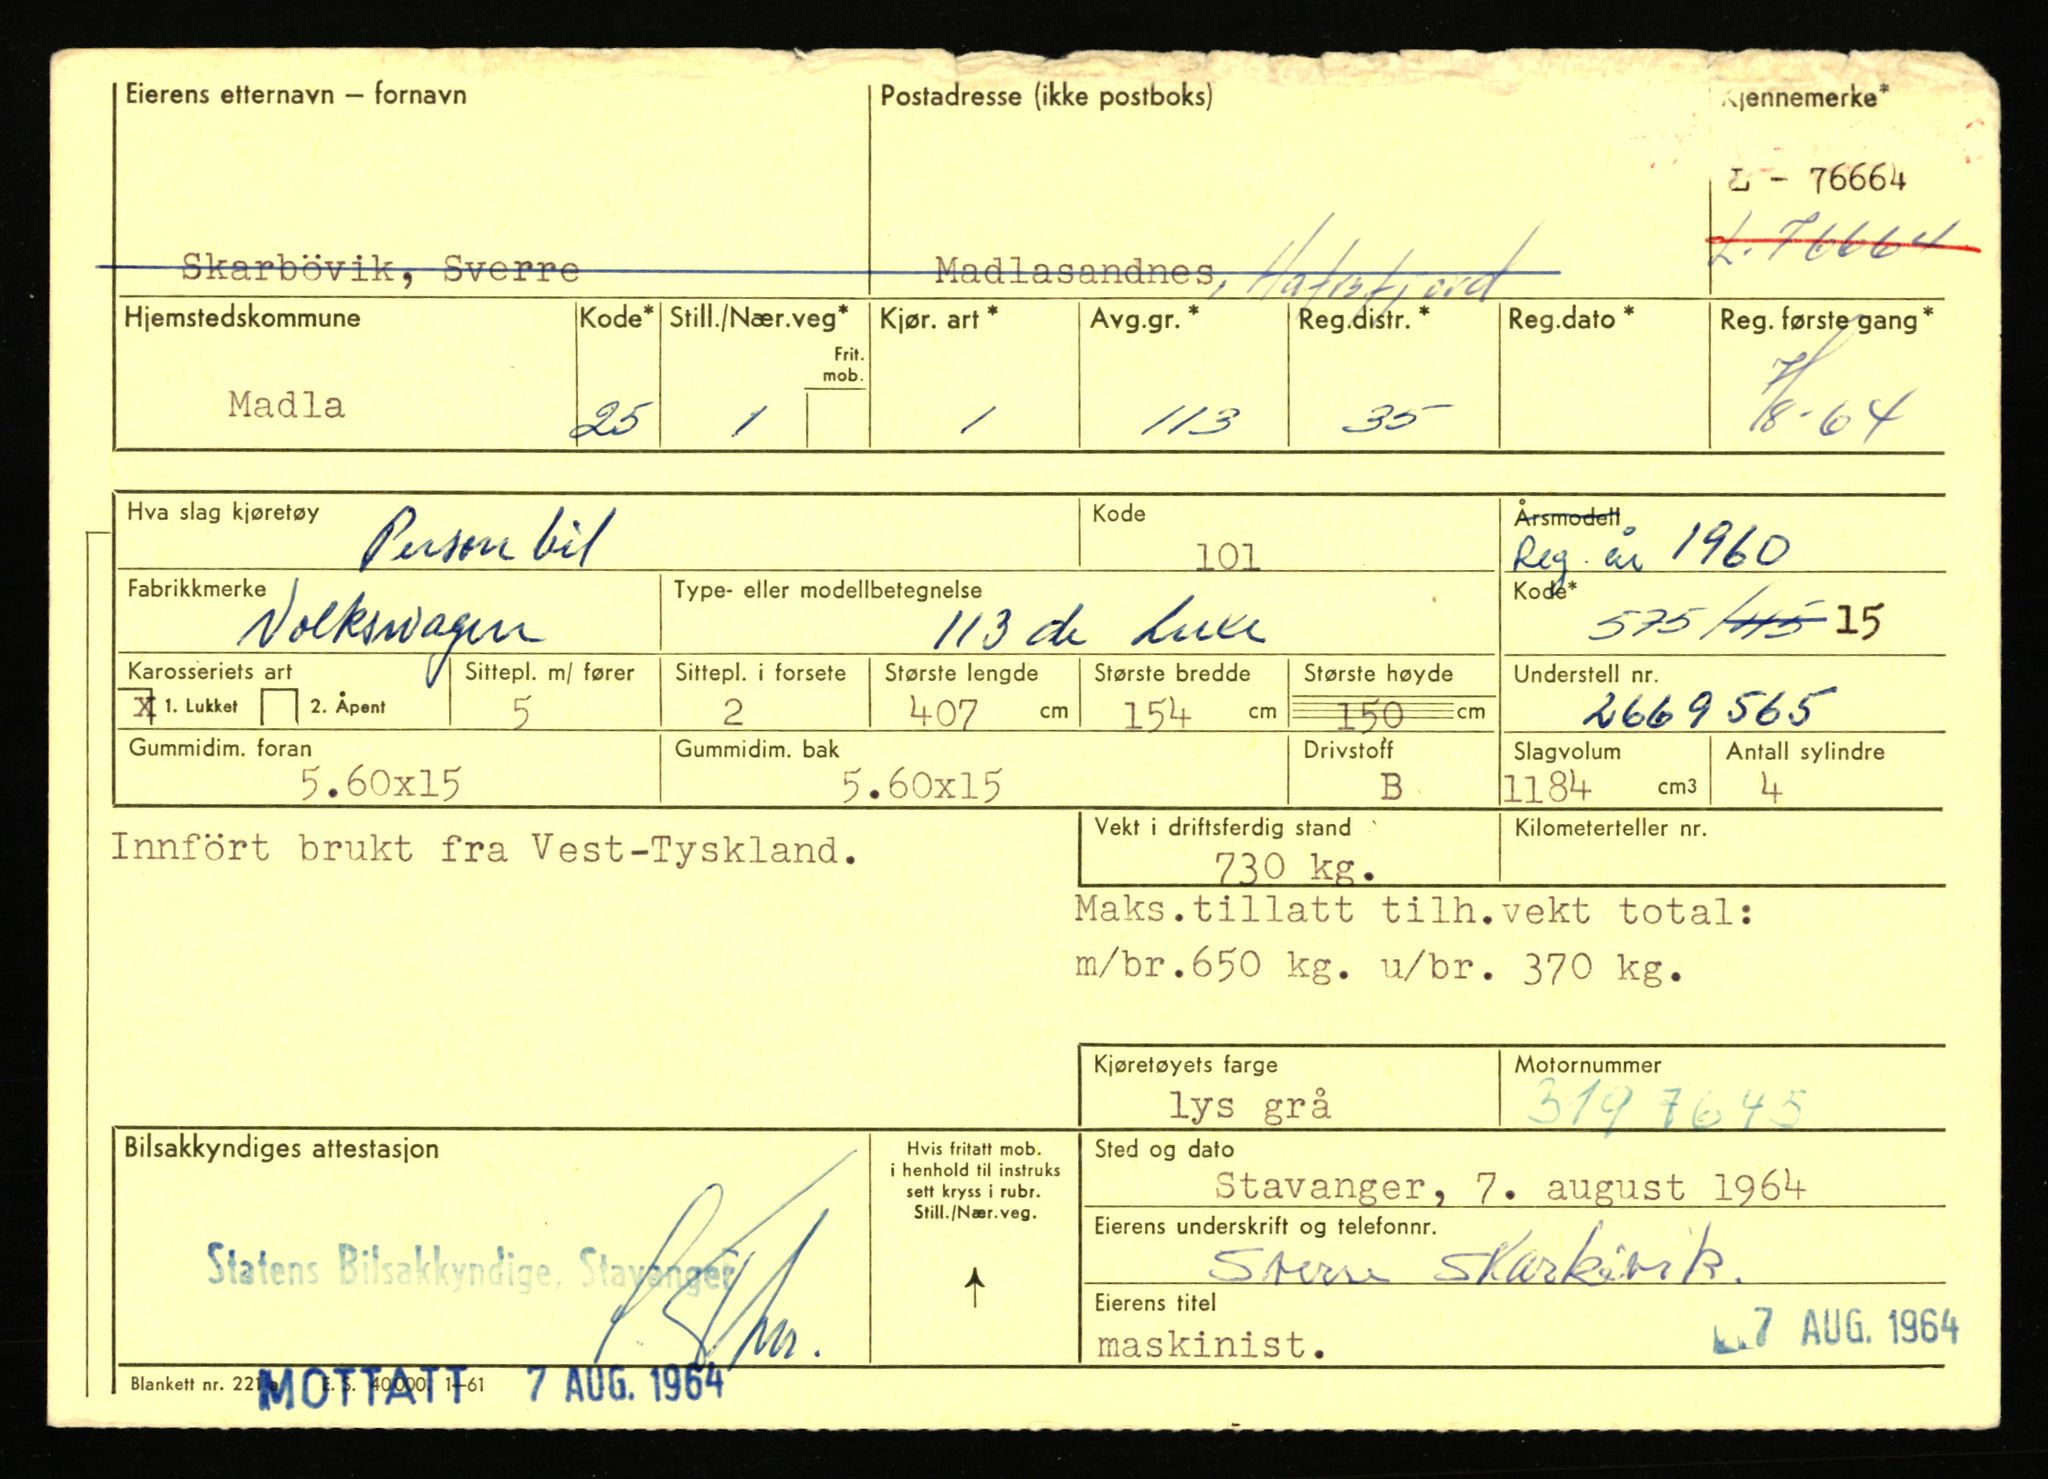 Eierens etternavn – fornavn Postadresse (ikke postboks) Kjennemerke*
L - 76664
L. 76664
Skarbövik, Sverre Madlasandnes, Hafrsfjord
Hjemstedskommune Kode* Still./Nær.veg* Kjør. art* Avg.gr.* Reg.distr.* Reg.dato* Reg. første gang*
Frit.
mob.
Madla 25 1 1 113 35 7/8-64
Hva slag kjøretøy Personbil Kode 101 Årsmodell
Reg. år 1960
Fabrikkmerke Volkswagen Type- eller modellbetegnelse 113 de Luxe Kode* 575/115 15
Karosseriets art Sittepl. m/ fører Sittepl. i forsete Største lengde Største bredde Største høyde Understell nr.
X 1. Lukket 2. Åpent 5 2 407 cm 154 cm 150 cm 2669565
Gummidim. foran Gummidim. bak Drivstoff Slagvolum Antall sylindre
5.60x15 5.60x15 B 1184 cm3 4
Innfört brukt fra Vest-Tyskland.
Vekt i driftsferdig stand Kilometerteller nr.
730 kg.
Maks.tillatt tilh.vekt total:
m/br.650 kg. u/br. 370 kg.
Kjøretøyets farge Motornummer
lys grå 3197645
Bilsakkyndiges attestasjon
Statens Bilsakkyndige, Stavanger
Hvis fritatt mob.
i henhold til instruks
sett kryss i rubr.
Still./Nær.veg.
Sted og dato
Stavanger, 7. august 1964
Eierens underskrift og telefonnr.
Sverre Skarbövik.
Eierens titel
maskinist.
7 AUG. 1964
Blankett nr. 221 a E. S. 40000. 1-61
MOTTATT 7 AUG. 1964